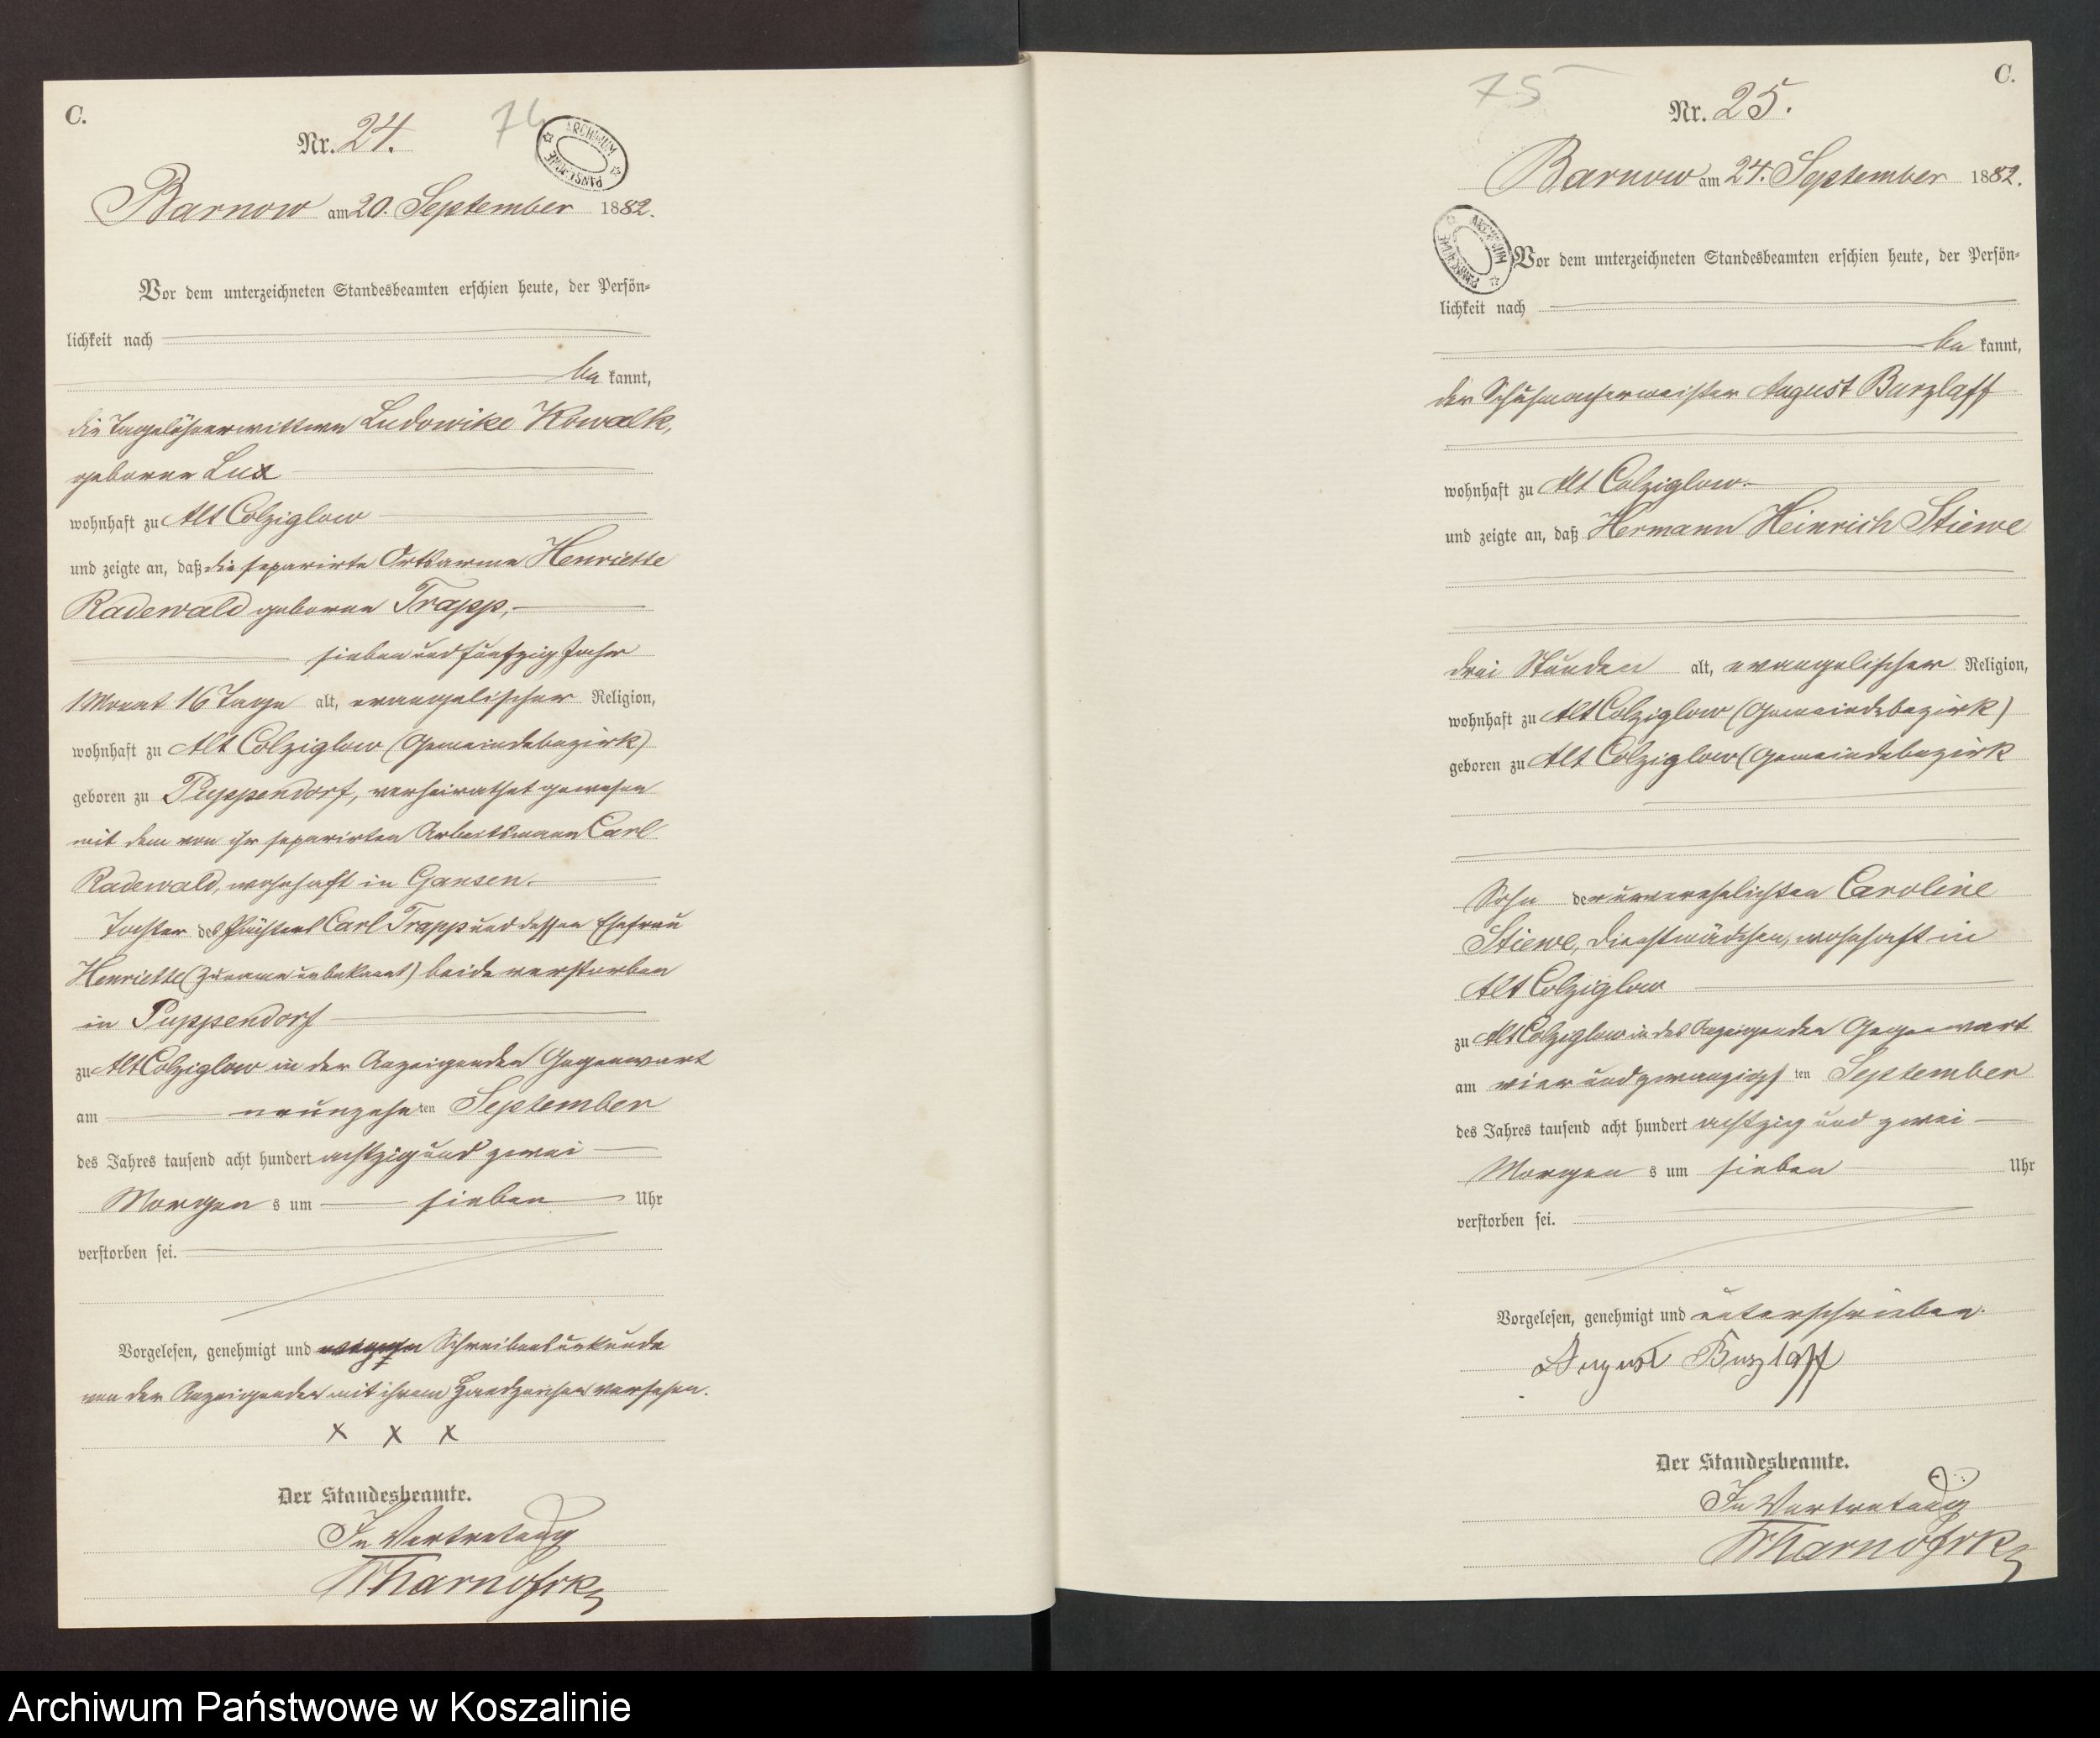 C.
Nr. 24.
74
ARCHIWUM PAŃSTWOWE
Barnow am 20. September 1882.
Vor dem unterzeichneten Standesbeamten erschien heute, der Persön-
lichkeit nach
be kannt,
die Tagelöhnerwittwe Ludowike Kowalk,
geborene Lux
wohnhaft zu Alt Colziglow
und zeigte an, daß die separirte Ortsarme Henriette
Radewald geborene Trapp,
sieben und fünfzig Jahr
1 Monat 16 Tage alt, evangelischer Religion,
wohnhaft zu Alt Colziglow (Gemeindebezirk)
geboren zu Puppendorf, verheirathet gewesen
mit dem von ihr separirten Arbeitsmann Carl
Radewald, wohnhaft in Gansen.
Tochter des Carl Trapp und dessen Ehefrau
Henriette (Zuname unbekannt) beide verstorben
in Puppendorf
zu Alt Colziglow in der Anzeigenden Gegenwart
am neunzehn ten September
des Jahres tausend acht hundert achtzig und zwei
Morgen s um sieben Uhr
verstorben sei.
Vorgelesen, genehmigt und wegen Schreibensunkunde
von der Anzeigenden mit ihrem Handzeichen versehen.
x x x
Der Standesbeamte.
In Vertretung
C.
75
Nr. 25.
Barnow am 24. September 1882.
ARCHIWUM PAŃSTWOWE
Vor dem unterzeichneten Standesbeamten erschien heute, der Persön-
lichkeit nach
be kannt,
der Schuhmachermeister August Burzlaff
wohnhaft zu Alt Colziglow.
und zeigte an, daß Hermann Heinrich Stiewe
drei Stunden alt, evangelischer Religion,
wohnhaft zu Alt Colziglow (Gemeindebezirk)
geboren zu Alt Colziglow (Gemeindebezirk
Sohn der unverehelichten Caroline
Stiewe, Dienstmädchen, wohnhaft in
Alt Colziglow
zu Alt Colziglow in des Anzeigenden Gegenwart
am vier und zwanzigs ten September
des Jahres tausend acht hundert achtzig und zwei
Morgen s um sieben Uhr
verstorben sei.
Vorgelesen, genehmigt und unterschrieben.
August Burzlaff
Der Standesbeamte.
In Vertretung
Archiwum Państwowe w Koszalinie